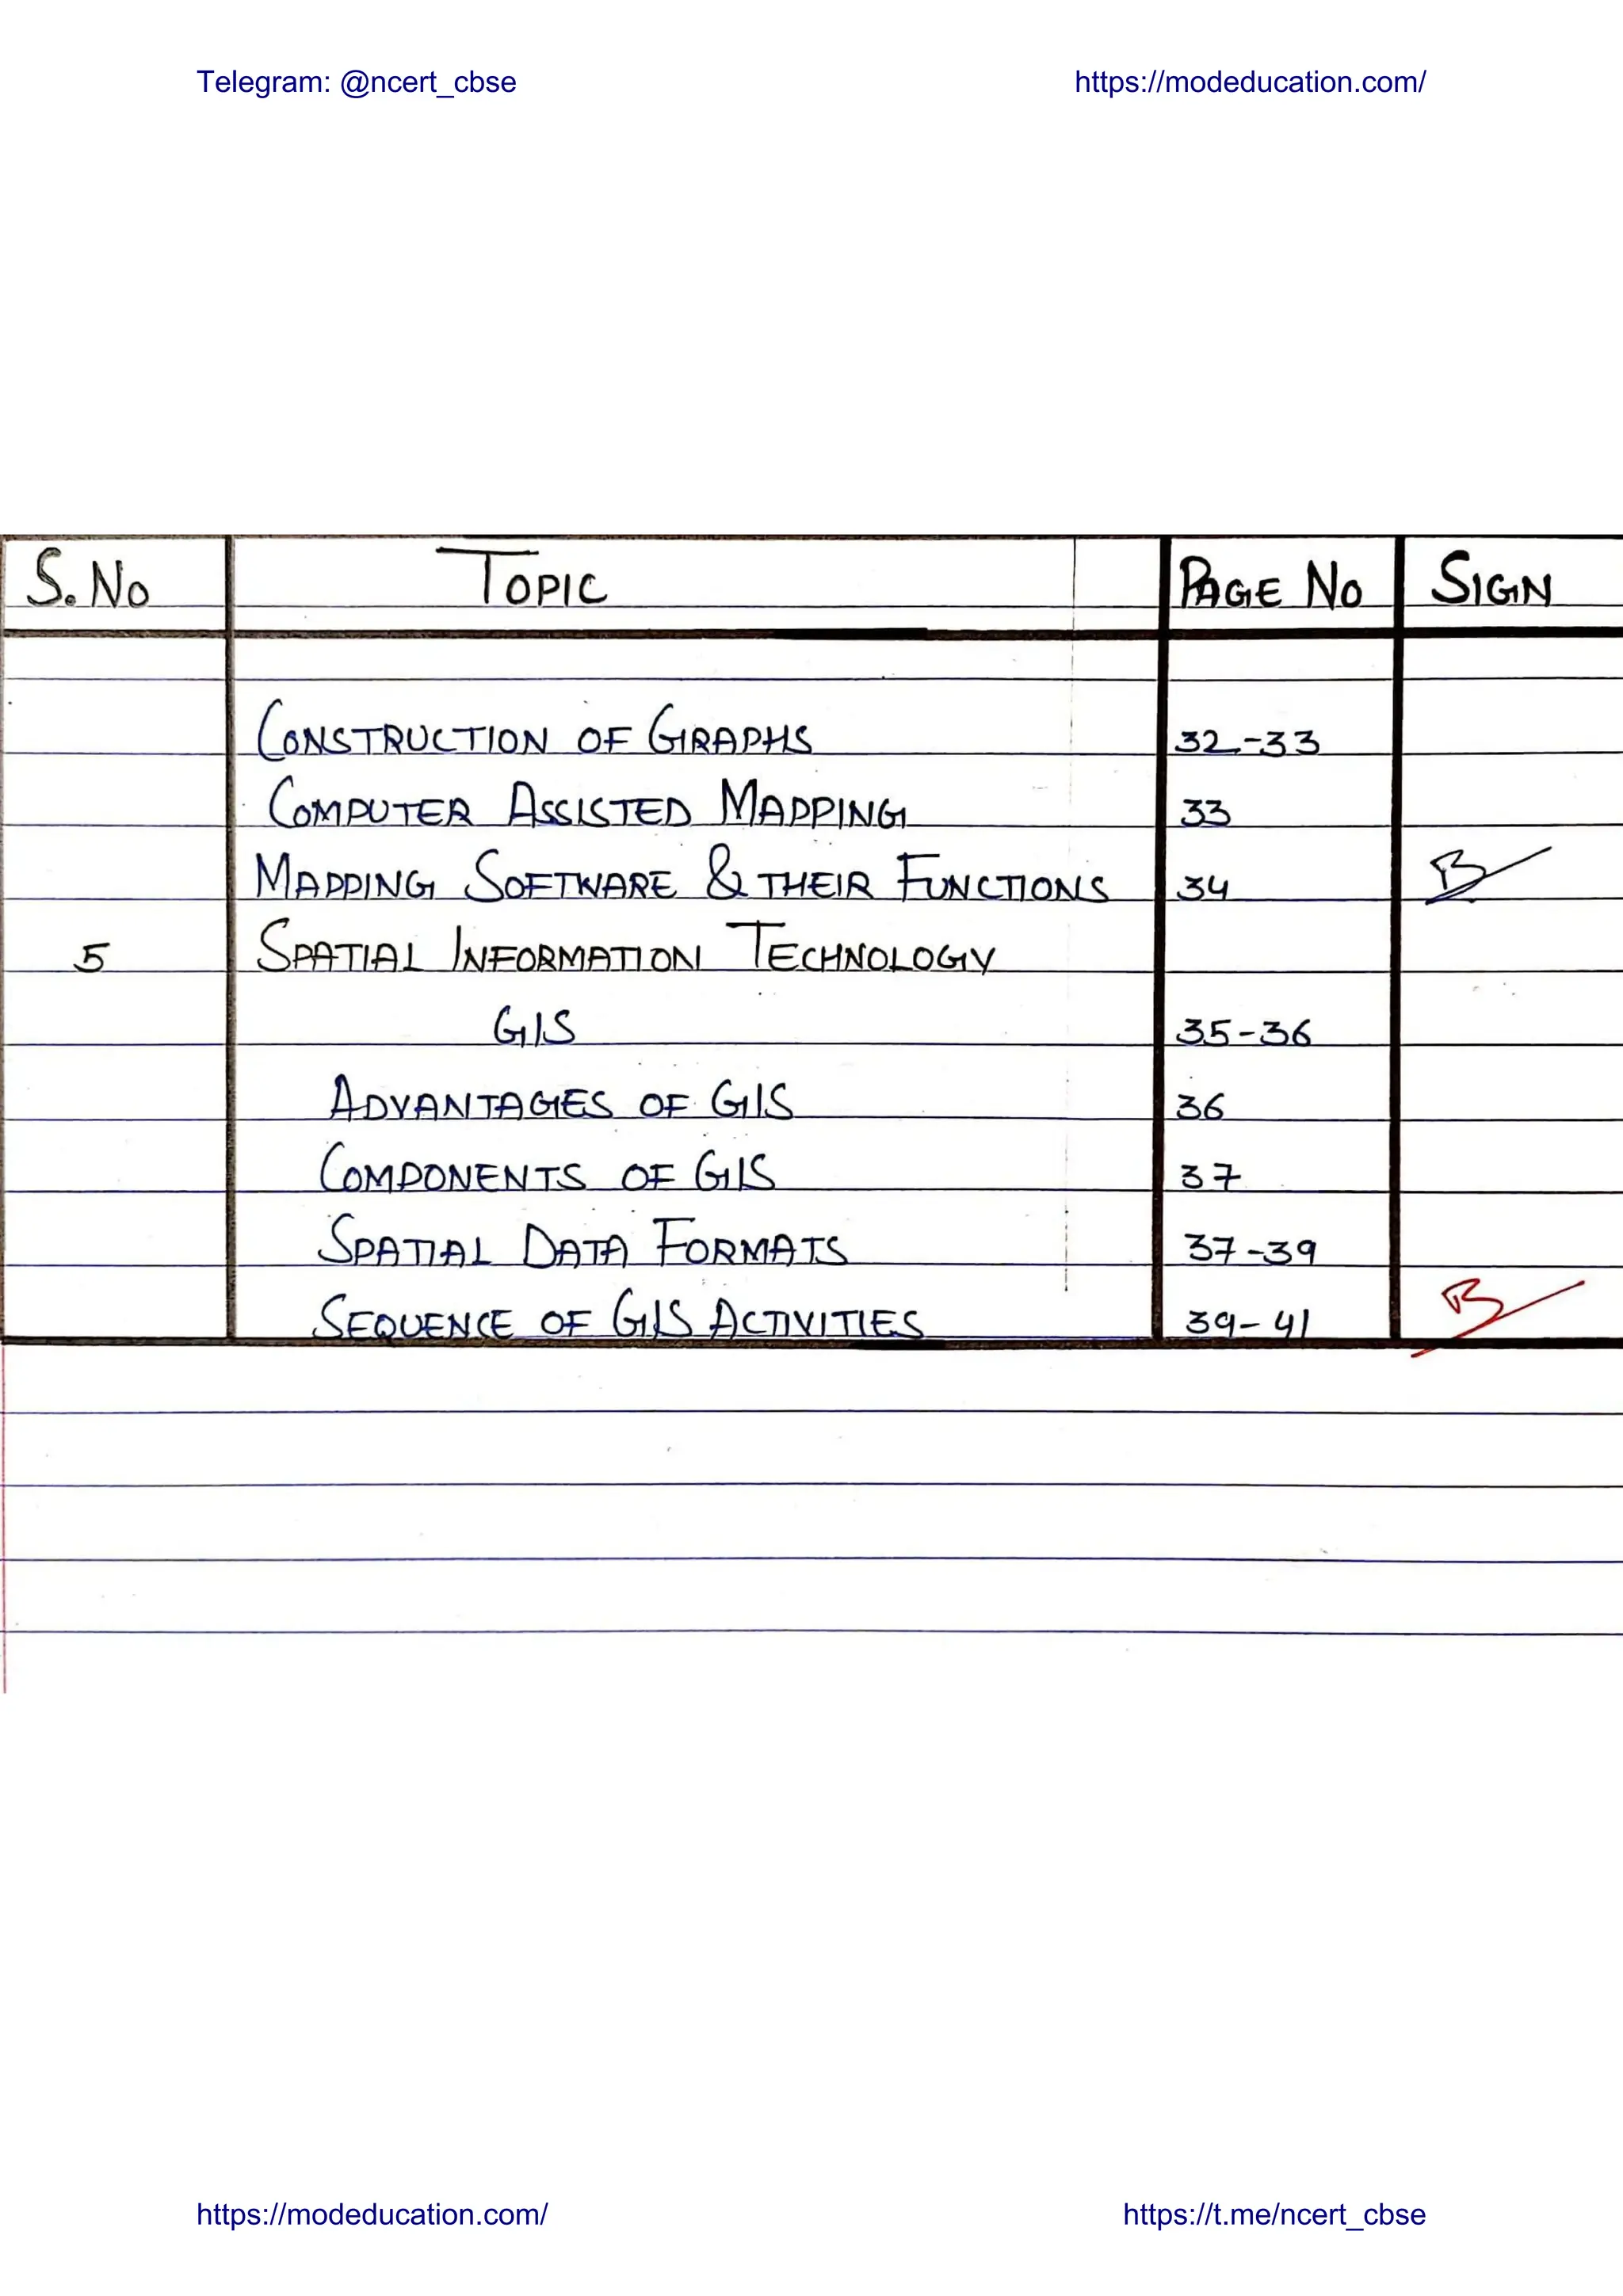 Telegram: @ncert_cbse https://modeducation.com/
S.No TOPIC PAGE No SIGN
CONSTRUCTION OF GRAPHS 32-33
COMPUTER ASSISTED MAPPING 33
MAPPING SOFTWARE & THEIR FUNCTIONS 34
5 SPATIAL INFORMATION TECHNOLOGY
GIS 35-36
ADVANTAGES OF GIS 36
COMPONENTS OF GIS 37
SPATIAL DATA FORMATS 37-39
SEQUENCE OF GIS ACTIVITIES 39-41
https://modeducation.com/ https://t.me/ncert_cbse